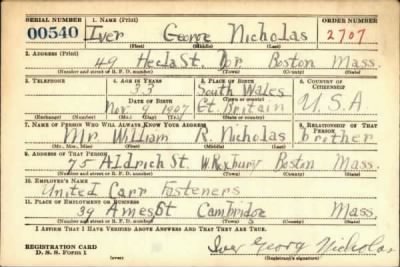 SERIAL NUMBER 1. NAME (Print) ORDER NUMBER
00540 Iver George Nicholas 2707
(First) (Middle) (Last)
2. ADDRESS (Print)
49 Hecla St. Dor Boston Mass.
(Number and street or R. F. D. number) (Town) (County) (State)
3. TELEPHONE 4. AGE IN YEARS 5. PLACE OF BIRTH 6. COUNTRY OF CITIZENSHIP
33 South Wales
DATE OF BIRTH (Town or county)
Nov. 9 1907 Gt. Britain U.S.A
(Exchange) (Number) (Mo.) (Day) (Yr.) (State or country)
7. NAME OF PERSON WHO WILL ALWAYS KNOW YOUR ADDRESS 8. RELATIONSHIP OF THAT PERSON
Mr. William R. Nicholas brother
(Mr., Mrs., Miss) (First) (Middle) (Last)
9. ADDRESS OF THAT PERSON
75 Aldrich St. W Roxbury Boston Mass.
(Number and street or R. F. D. number) (Town) (County) (State)
10. EMPLOYER'S NAME
United Carr Fasteners
11. PLACE OF EMPLOYMENT OR BUSINESS
39 Ames St Cambridge Mass.
(Number and street or R. F. D. number) (Town) (County) (State)
I AFFIRM THAT I HAVE VERIFIED ABOVE ANSWERS AND THAT THEY ARE TRUE.
REGISTRATION CARD
D. S. S. Form 1 (over) Iver George Nicholas
(Registrant's signature)